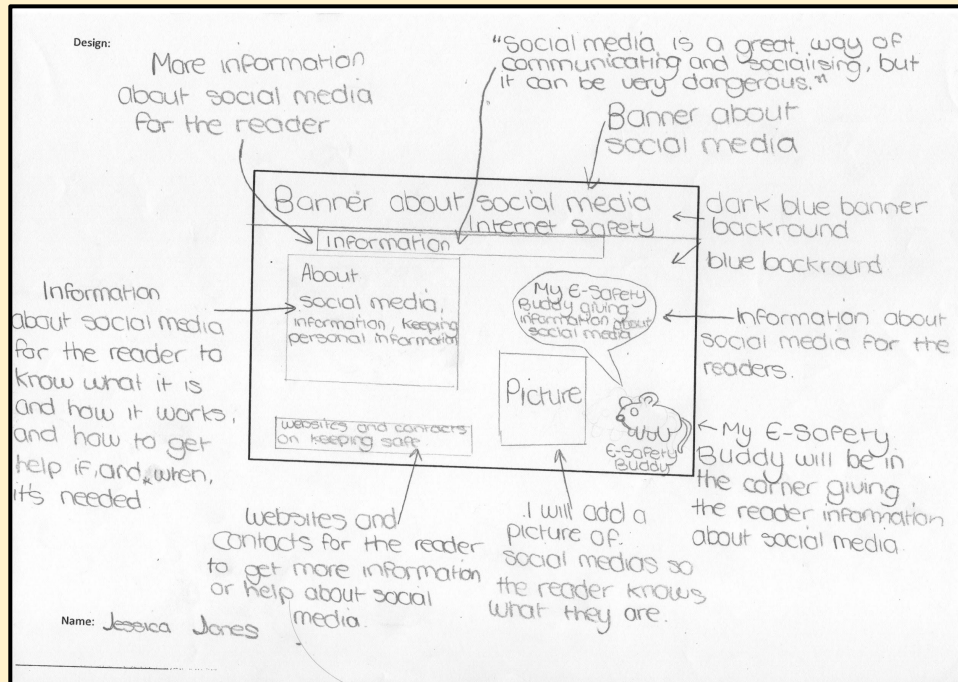 Design:
More information
about social media
for the reader
"Social media, is a great way of
communicating and socialising, but
it can be very dangerous."
Banner about
social media
Banner about social media
Internet Safety
information
dark blue banner
backround
blue backround
About
social media,
information, keeping
personal information
My E-Safety
Buddy giving
information about
social media
Information
about social media
for the reader to
know what it is
and how it works,
and how to get
help if, and, when,
it's needed.
Information about
social media for the
readers.
Picture
websites and contacts
on keeping safe.
E-Safety
Buddy
My E-Safety
Buddy will be in
the corner giving
the reader information
about social media.
websites and
contacts for the reader
to get more information
or help about social
media.
I will add a
picture of
social medias so
the reader knows
what they are.
Name: Jessica Jones